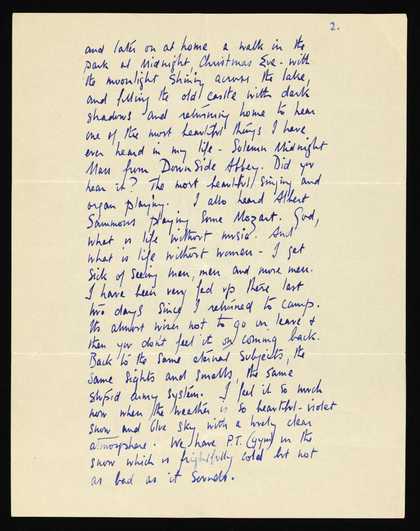 2.
and later on at home a walk in the
park at Midnight, Christmas Eve - with
the moonlight shining across the lake,
and filling the old castle with dark
shadows and returning home to hear
one of the most beautiful things I have
ever heard in my life - Solemn Midnight
Mass from Downside Abbey. Did you
hear it? The most beautiful singing and
organ playing. I also heard Albert
Sammons playing some Mozart. God,
what is life without music. And
what is life without women - I get
sick of seeing men, men and more men.
I have been very fed up these last
two days since I returned to camp.
Its almost wiser not to go on leave &
then you don't feel it on coming back.
Back to the same eternal subjects, the
same sights and smells, the same
stupid army system. I feel it so much
now when the weather is so beautiful - violet
snow and blue sky with a lovely clear
atmosphere. We have P.T. (gym) in the
snow which is frightfully cold but not
as bad as it sounds.